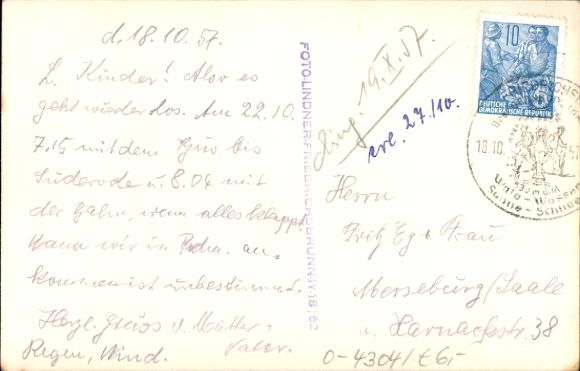 d. 18.10.57.
L. Kinder! Also es
geht wieder los. Am 22.10.
7,15 mit dem Bus bis
Suderode u. 8.04 mit
der Bahn, wenn alles klappt.
Wann wir in an-
kommen ist unbestimmt.
Herzl. Gruss v. Mutter u
Vater.
Regen, Wind.
FOTO-LINDNER-FRIEDRICHSBRUNN
eing. 19.X.57.
erl. 27/10.
10
DEUTSCHE
DEMOKRATISCHE REPUBLIK
18.10.
Wald - Wasser
Sonne - Schnee
Herrn
Fritz Eg + Frau
Merseburg/Saale
v. Harnackstr. 38
0-4304/t6,-